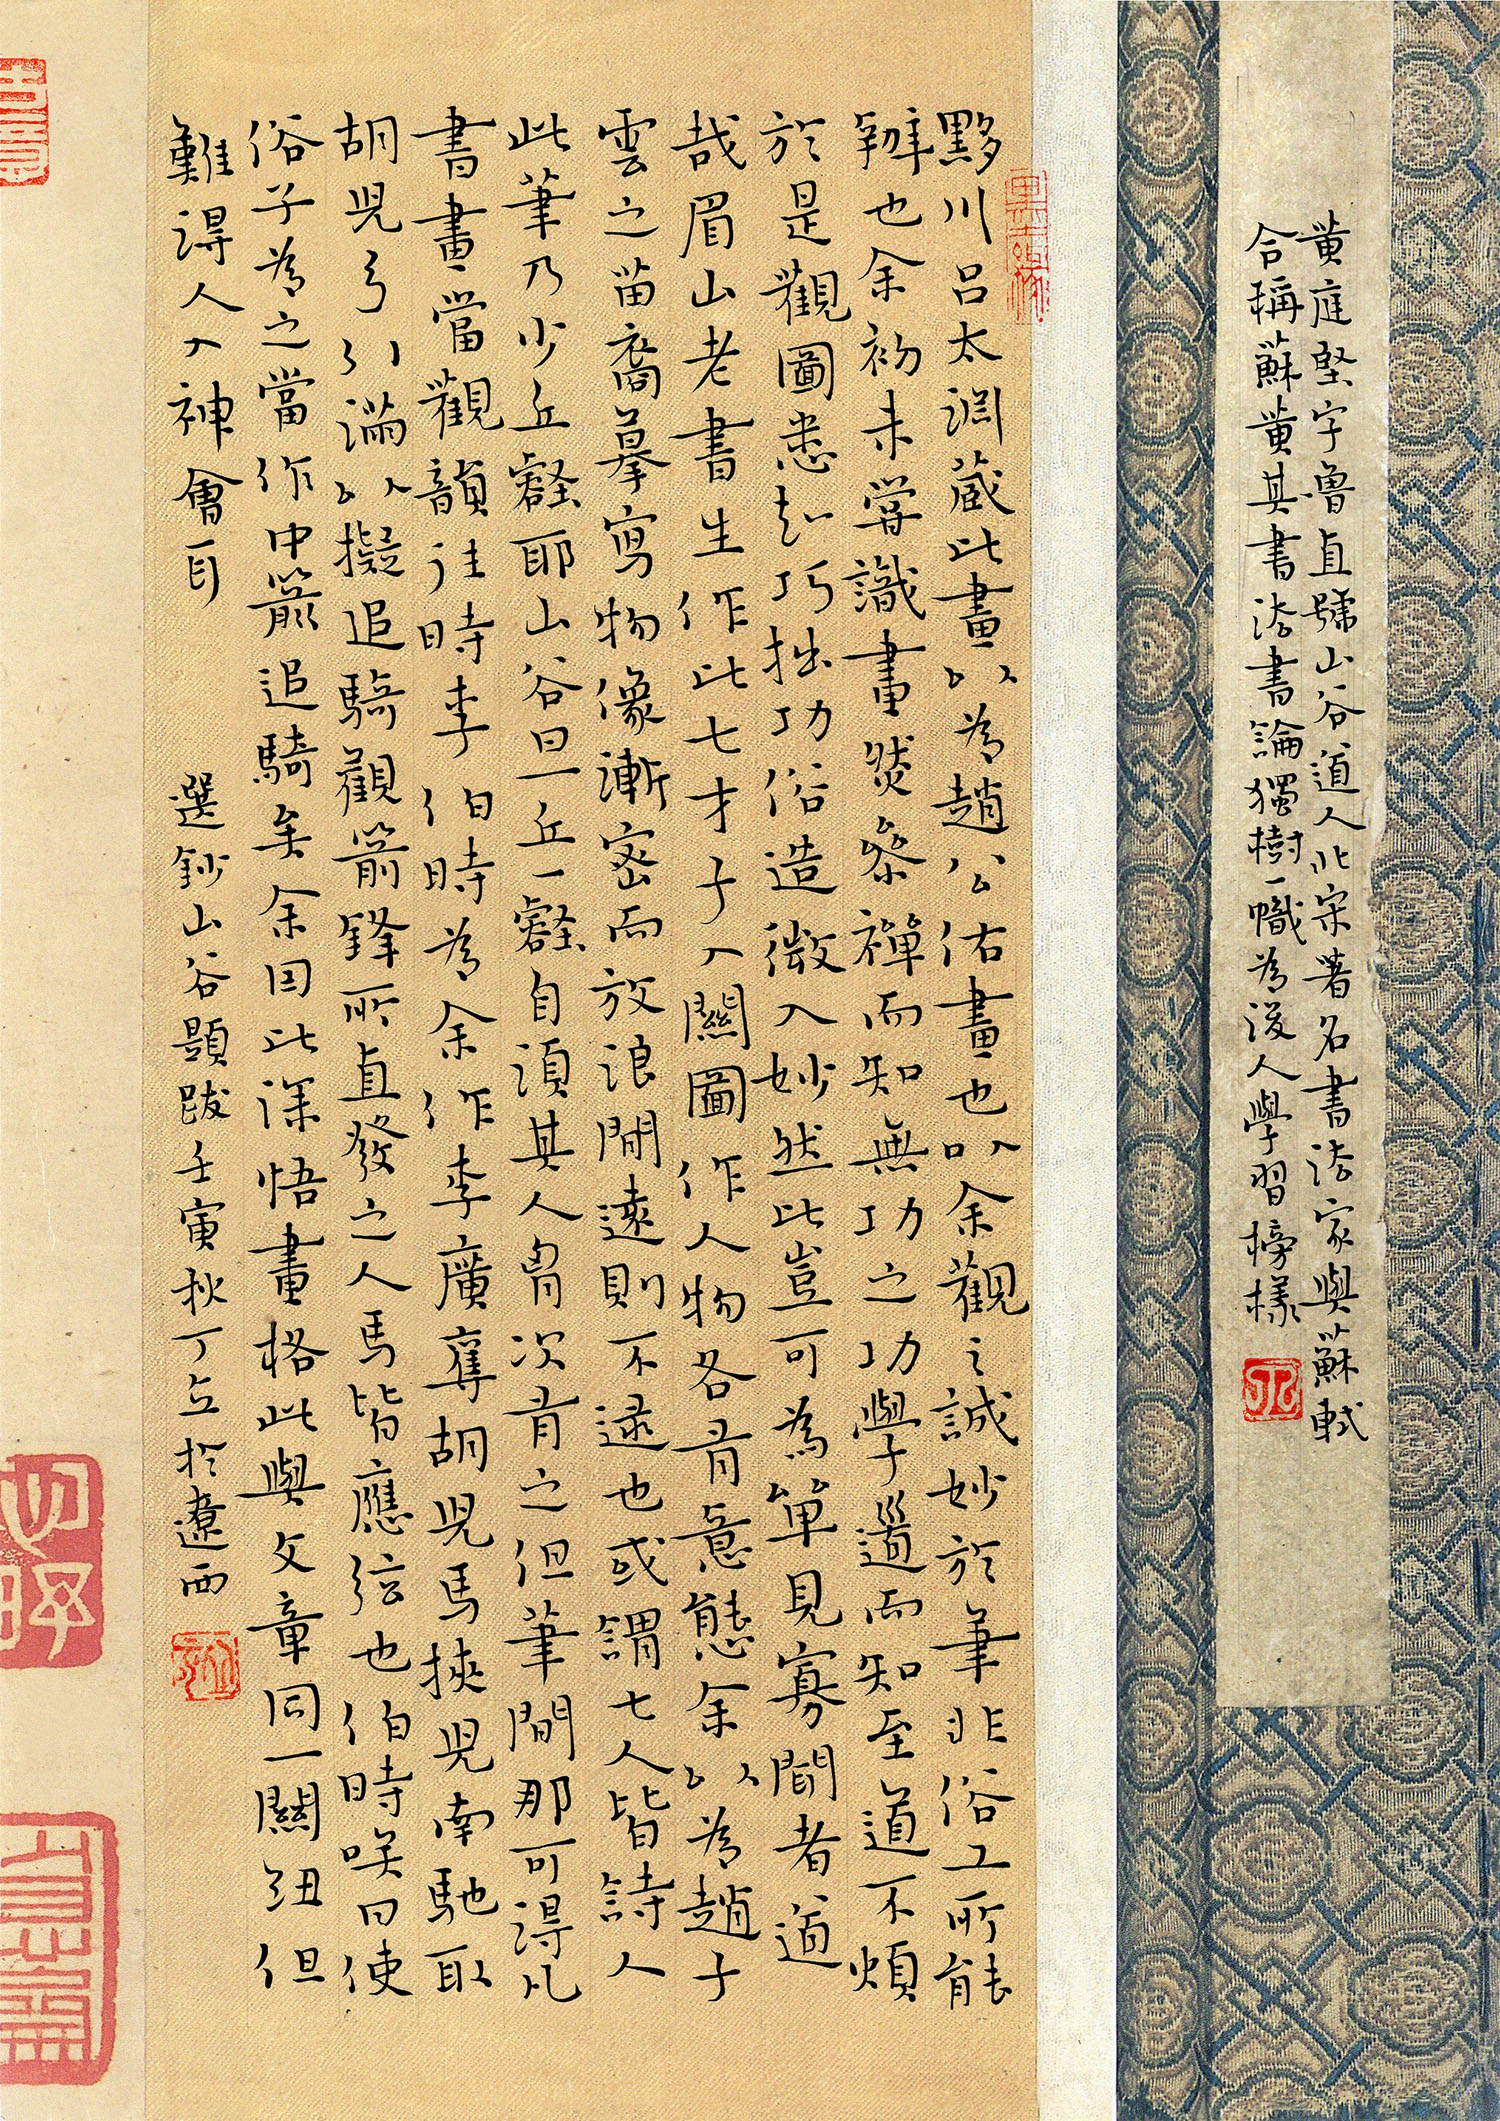 黄庭堅字魯直號山谷道人北宋著名書法家與蘇軾
合稱蘇黄其書法書論獨樹一幟為後人學習榜樣
黟川呂太淵藏此畫以為趙公佑畫也以余觀之誠妙於筆非俗工所能
辦也余初未嘗識畫然參禪而知無功之功學道而知至道不煩
於是觀圖悉知巧拙功俗造微入妙然此豈可為單見寡聞者道
哉眉山老書生作此七才子入關圖作人物各有意態余以為趙子
雲之苗裔摹寫物像漸密而放浪閒遠則不逮也或謂七人皆詩人
此筆乃少丘壑耶山谷曰一丘一壑自須其人胷次有之但筆間那可得凡
書畫當觀韻往時李伯時為余作李廣奪胡兒馬挾兒南馳取
胡兒弓引滿以擬追騎觀箭鋒所直發之人馬皆應弦也伯時咲曰使
俗子為之當作中箭追騎矣余因此深悟畫格此與文章同一關紐但
難得人入神會耳
選鈔山谷題跋壬寅秋丁立於遼西